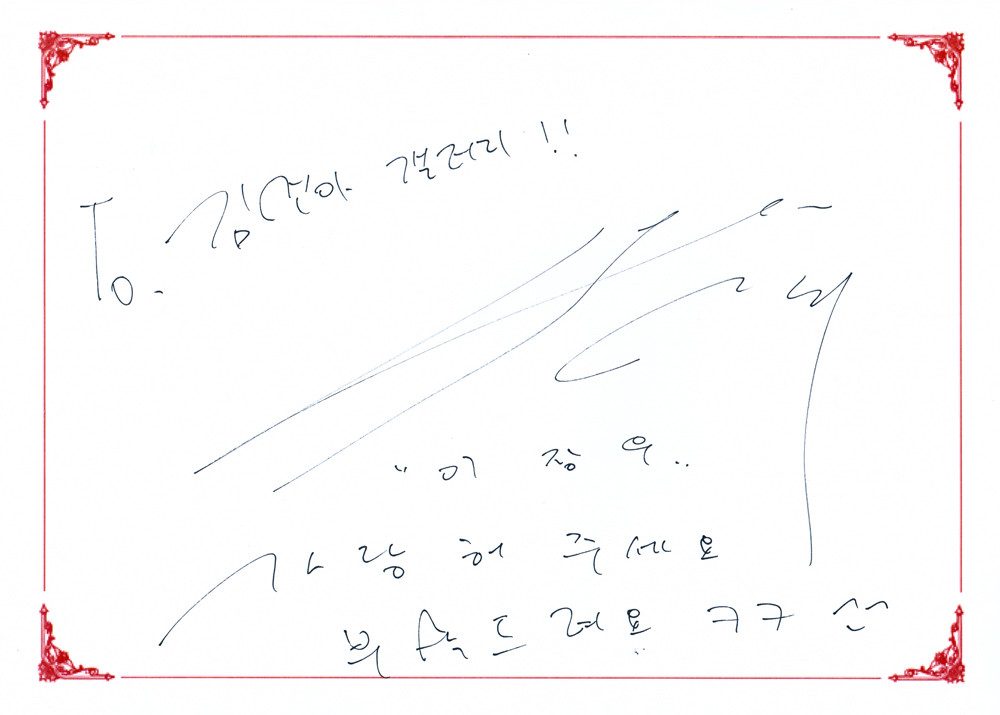 To. 김선아 갤러리!!
"이 장 우..
사랑 해 주세요
부탁드려요 ㅋㅋ